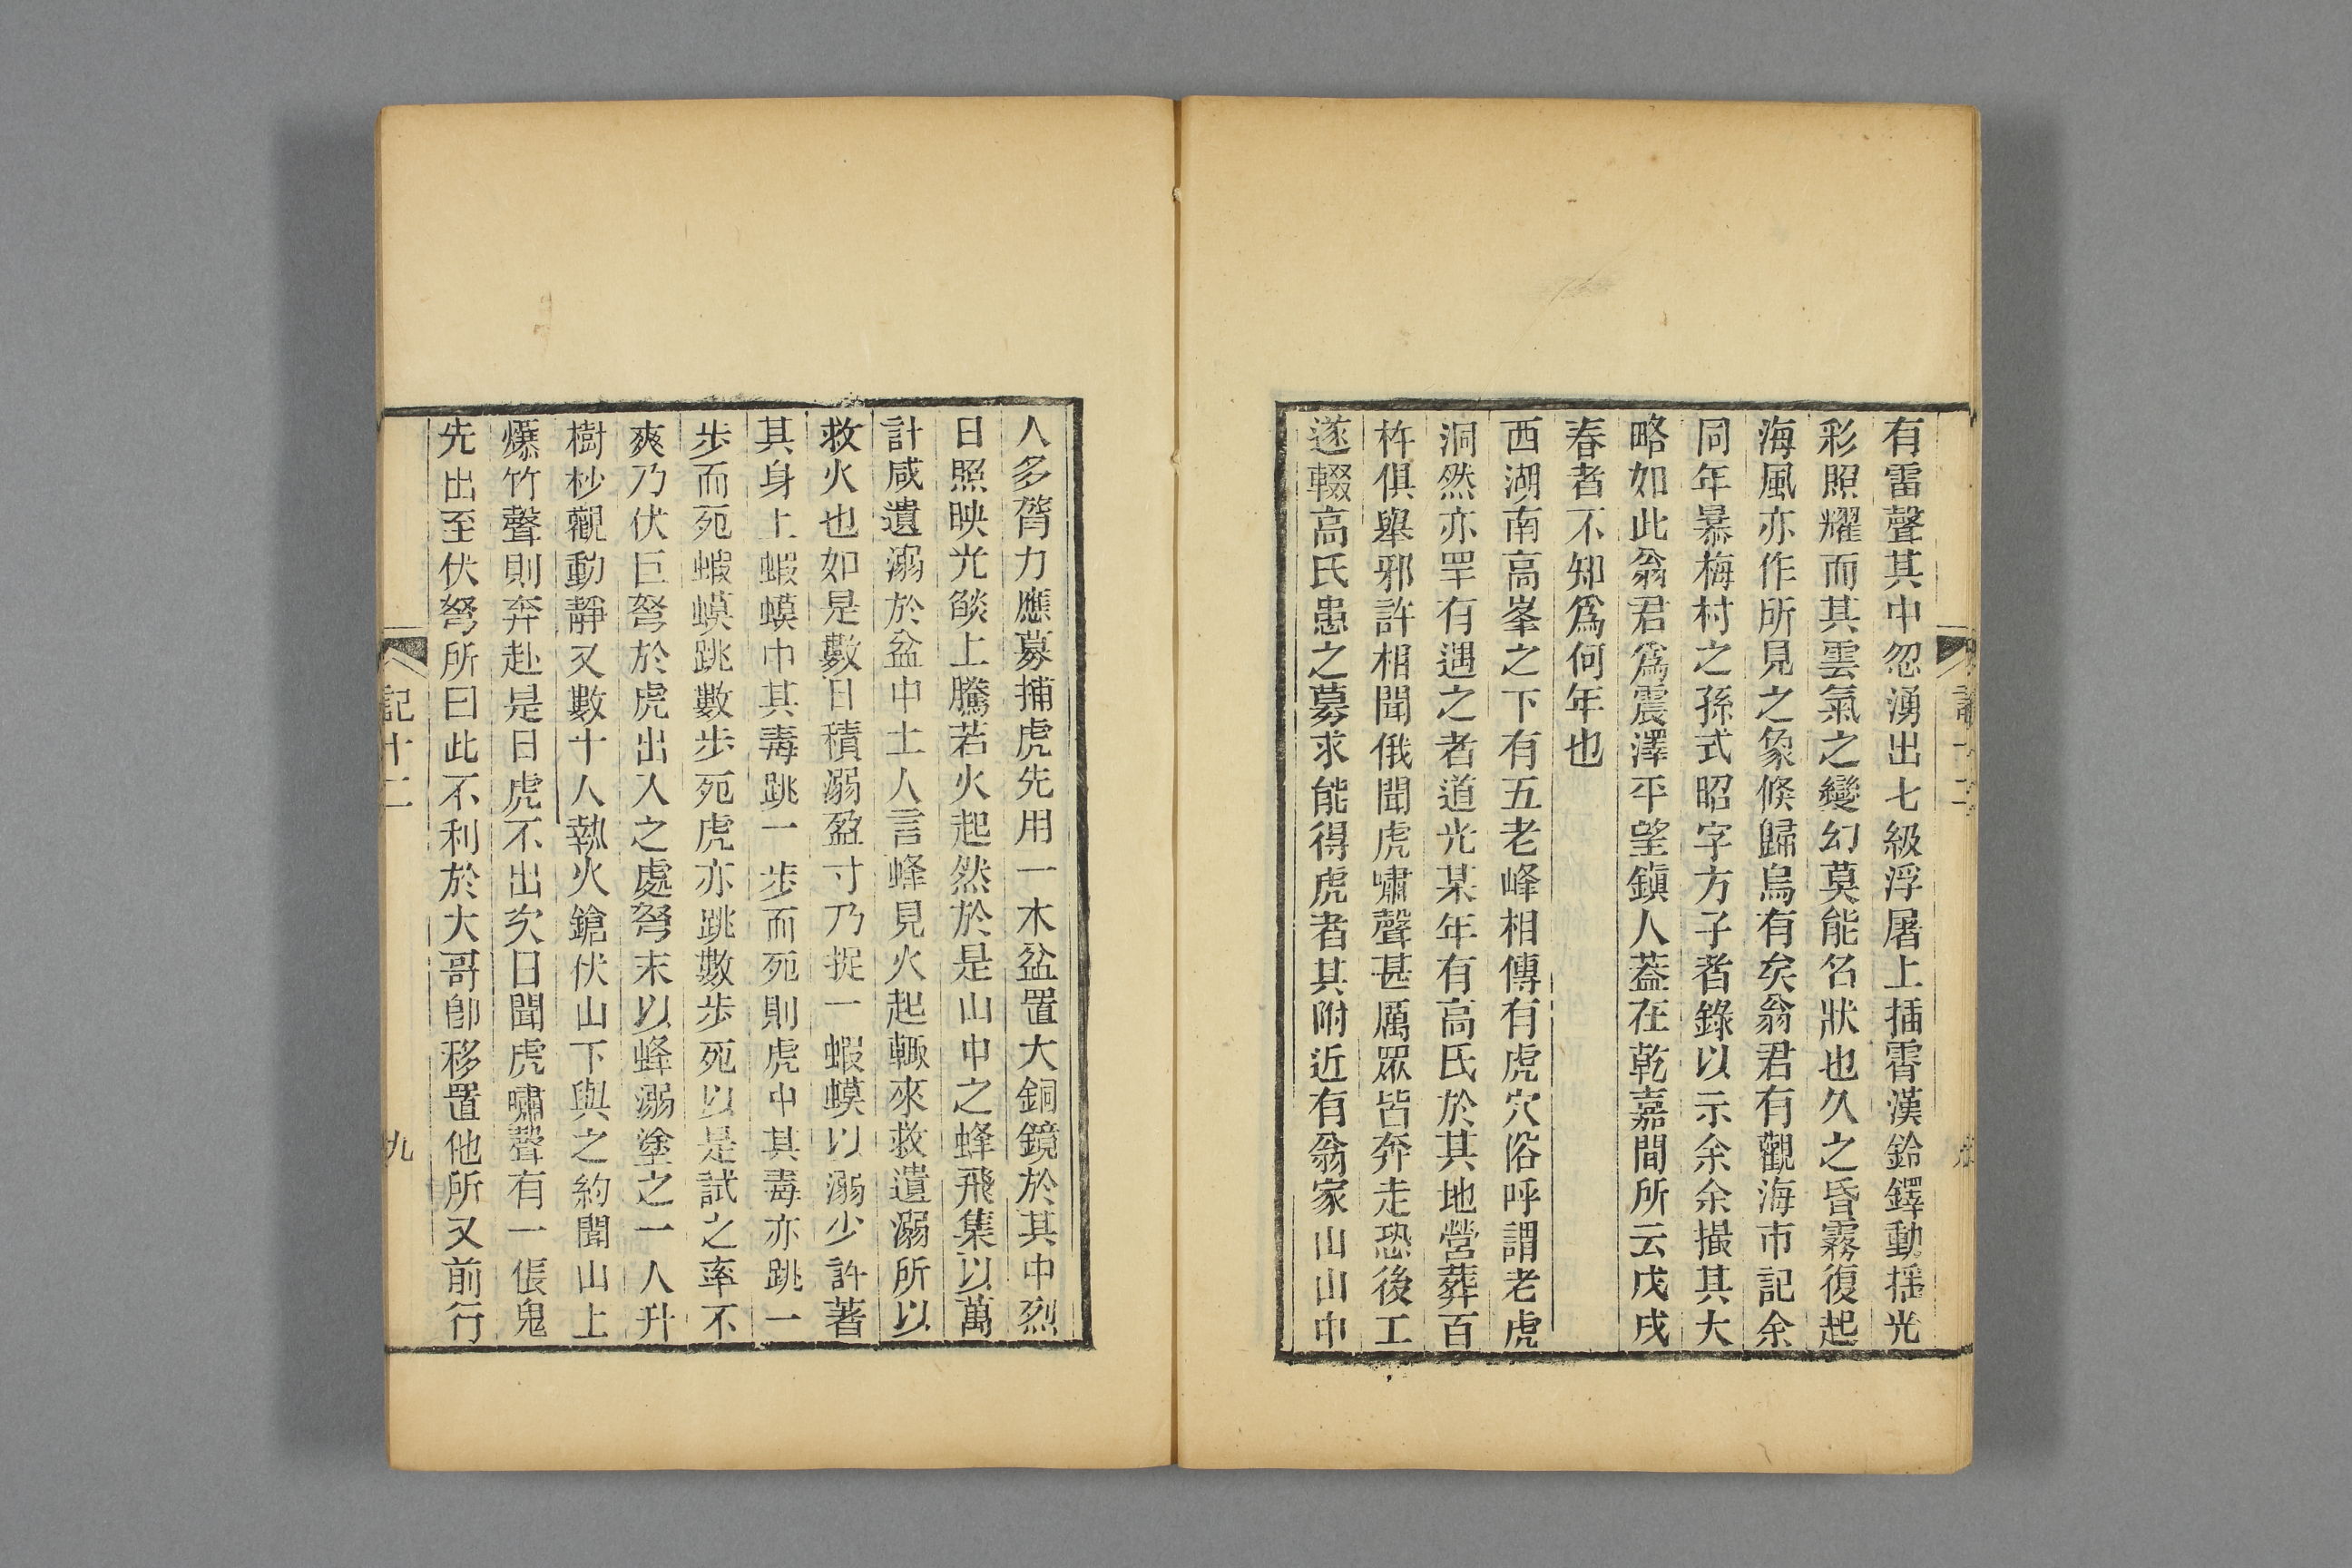 有雷聲其中忽湧出七級浮屠上插霄漢鈴鐸動揺光
彩照耀而其雲氣之變幻莫能名狀也久之昏霧復起
海風亦作所見之象倐歸烏有矣翁君有觀海市記余
同年暴梅村之孫式昭字方子者錄以示余余撮其大
略如此翁君爲震澤平望鎭人蓋在乾嘉間所云戊戌
春者不知爲何年也
西湖南高峯之下有五老峰相傳有虎穴俗呼謂老虎
洞然亦罕有遇之者道光某年有高氏於其地營葬百
杵俱舉邪許相聞俄聞虎嘯聲甚厲眾皆奔走恐後工
遂輟高氏患之募求能得虎者其附近有翁家山山中
人多膂力應募捕虎先用一木盆置大銅鏡於其中烈
日照映光燄上騰若火起然於是山中之蜂飛集以萬
計咸遺溺於盆中土人言蜂見火起輙來救遺溺所以
救火也如是數日積溺盈寸乃捉一蝦蟆以溺少許著
其身上蝦蟆中其毒跳一步而死則虎中其毒亦跳一
步而死蝦蟆跳數步死虎亦跳數步死以是試之率不
爽乃伏巨弩於虎出入之處弩末以蜂溺塗之一人升
樹杪觀動靜又數十人執火鎗伏山下與之約聞山上
爆竹聲則奔赴是日虎不出次日聞虎嘯聲有一倀鬼
先出至伏弩所曰此不利於大哥卽移置他所又前行
記十二
九